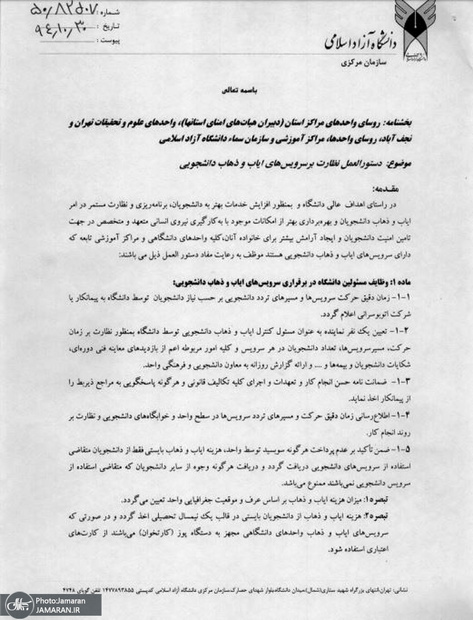 شماره ۵۰/۸۲۵۰۷
تاریخ : ۹۴/۱۰/۳۰
پیوست :
دانشگاه آزاد اسلامی
سازمان مرکزی
باسمه تعالی
بخشنامه: روسای واحدهای مراکز استان (دبیران هیات‌های امنای استانها)، واحدهای علوم و تحقیقات تهران و
نجف آباد، روسای واحدها، مراکز آموزشی و سازمان سماء دانشگاه آزاد اسلامی
موضوع: دستورالعمل نظارت برسرویس‌های ایاب و ذهاب دانشجویی
مقدمه:
در راستای اهداف عالی دانشگاه و بمنظور افزایش خدمات بهتر به دانشجویان، برنامه‌ریزی و نظارت مستمر در امر
ایاب و ذهاب دانشجویان و بهره‌برداری بهتر از امکانات موجود با به‌کارگیری نیروی انسانی متعهد و متخصص در جهت
تامین امنیت دانشجویان و ایجاد آرامش بیشتر برای خانواده آنان،کلیه واحدهای دانشگاهی و مراکز آموزشی تابعه که
دارای سرویس‌های ایاب و ذهاب دانشجویی هستند موظف به رعایت مفاد دستورالعمل ذیل می باشند:
ماده ۱: وظایف مسئولین دانشگاه در برقراری سرویس‌های ایاب و ذهاب دانشجویی:
۱-۱- زمان دقیق حرکت سرویس‌ها و مسیرهای تردد دانشجویی بر حسب نیاز دانشجویان توسط دانشگاه به پیمانکار یا
شرکت اتوبوسرانی اعلام گردد.
۱-۲- تعیین یک نفر نماینده به عنوان مسئول کنترل ایاب و ذهاب دانشجویی توسط دانشگاه بمنظور نظارت بر زمان
حرکت، مسیرسرویس‌ها، تعداد دانشجویان در هر سرویس و کلیه امور مربوطه اعم از بازدیدهای معاینه فنی دوره‌ای،
شکایات دانشجویان و بیمه‌ها و .... و ارائه گزارش روزانه به معاون دانشجویی و فرهنگی واحد.
۱-۳- ضمانت نامه حسن انجام کار و تعهدات و اجرای کلیه تکالیف قانونی و هرگونه پاسخگویی به مراجع ذیربط را
از پیمانکار اخذ نماید.
۱-۴- اطلاع‌رسانی زمان دقیق حرکت و مسیرهای تردد سرویس‌ها در سطح واحد و خوابگاه‌های دانشجویی و نظارت بر
روند انجام کار.
۱-۵- ضمن تأکید بر عدم پرداخت هرگونه سوبسید توسط واحد، هزینه ایاب و ذهاب بایستی فقط از دانشجویان متقاضی
استفاده از سرویس‌های دانشجویی دریافت گردد و دریافت هرگونه وجوه از سایر دانشجویان که متقاضی استفاده از
سرویس دانشجویی نمی‌باشند ممنوع می‌باشد.
تبصره۱: میزان هزینه ایاب و ذهاب بر اساس عرف و موقعیت جغرافیایی واحد تعیین می‌گردد.
تبصره۲: هزینه ایاب و ذهاب از دانشجویان بایستی در قالب یک نیمسال تحصیلی اخذ گردد و در صورتی که
سرویس‌های ایاب و ذهاب واحدهای دانشگاهی مجهز به دستگاه پوز (کارتخوان) می‌باشند از کارت‌های
اعتباری استفاده شود.
نشانی: تهران،انتهای بزرگراه شهید ستاری(شمال)،میدان دانشگاه،بلوار شهدای حصارک،سازمان مرکزی دانشگاه آزاد اسلامی کدپستی ۱۴۷۷۸۹۳۸۵۵ تلفن گویای ۴۷۴۸
جماران
Photo:Jamaran
JAMARAN.IR